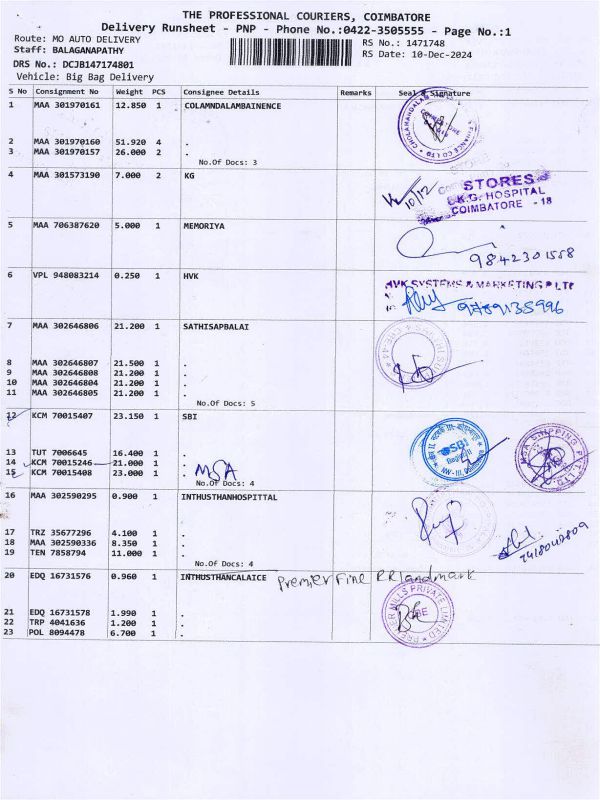 THE PROFESSIONAL COURIERS, COIMBATORE
Delivery Runsheet - PNP - Phone No.:0422-3505555 - Page No.:1
Route: MO AUTO DELIVERY
RS No.: 1471748
Staff: BALAGANAPATHY
RS Date: 10-Dec-2024
DRS No.: DCJB147174801
Vehicle: Big Bag Delivery
S No Consignment No Weight PCS Consignee Details Remarks Seal & Signature
1 MAA 301970161 12.850 1 COLAMNDALAMBAINENCE
2 MAA 301970160 51.920 4 .
3 MAA 301970157 26.000 2 .
No.Of Docs: 3
4 MAA 301573190 7.000 2 KG
10/12
STORES
K.G. HOSPITAL
COIMBATORE - 18
5 MAA 706387620 5.000 1 MEMORIYA
9842301558
6 VPL 948083214 0.250 1 HVK
HVK SYSTEMS & MARKETING P LTD
9789135996
7 MAA 302646806 21.200 1 SATHISAPBALAI
8 MAA 302646807 21.500 1 .
9 MAA 302646808 21.200 1 .
10 MAA 302646804 21.200 1 .
11 MAA 302646805 21.200 1 .
No.Of Docs: 5
12 KCM 70015407 23.150 1 SBI
SBI
MSA SHIPPING PVT. LTD.
13 TUT 7006645 16.400 1 .
14 KCM 70015246 21.000 1 .
15 KCM 70015408 23.000 1 . MSA
No.Of Docs: 4
16 MAA 302590295 0.900 1 INTHUSTHANHOSPITTAL
17 TRZ 35677296 4.100 1 .
18 MAA 302590336 8.350 1 .
19 TEN 7858794 11.000 1 .
No.Of Docs: 4
20 EDQ 16731576 0.960 1 INTHUSTHANCALAICE Premier Fine RR landmark
PREMIER MILLS PRIVATE LIMITED
21 EDQ 16731578 1.990 1 .
22 TRP 4041636 1.200 1 .
23 POL 8094478 6.700 1 .